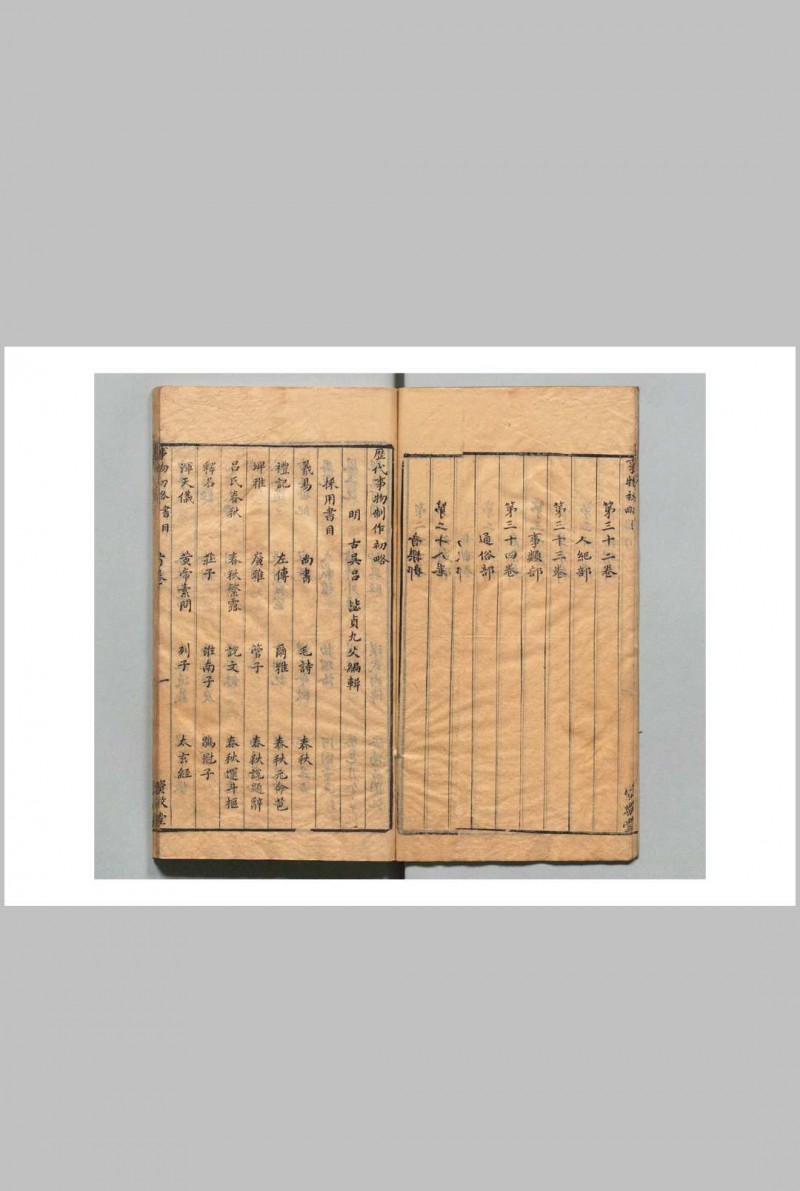 第三十二卷
人紀部
第三十三卷
事類部
第三十四卷
通俗部
歷代事物制作初略
明 古吳呂 毖貞九父編輯
採用書目
羲易 尚書 毛詩 春秋
禮記 左傳 爾雅 春秋元命苞
埤雅 廣雅 管子 春秋說題辭
呂氏春秋 春秋繁露 說文 春秋運斗樞
釋名 莊子 淮南子 鶡冠子
渾天儀 黃帝素問 列子 太玄經
事物初略書目 首卷 一